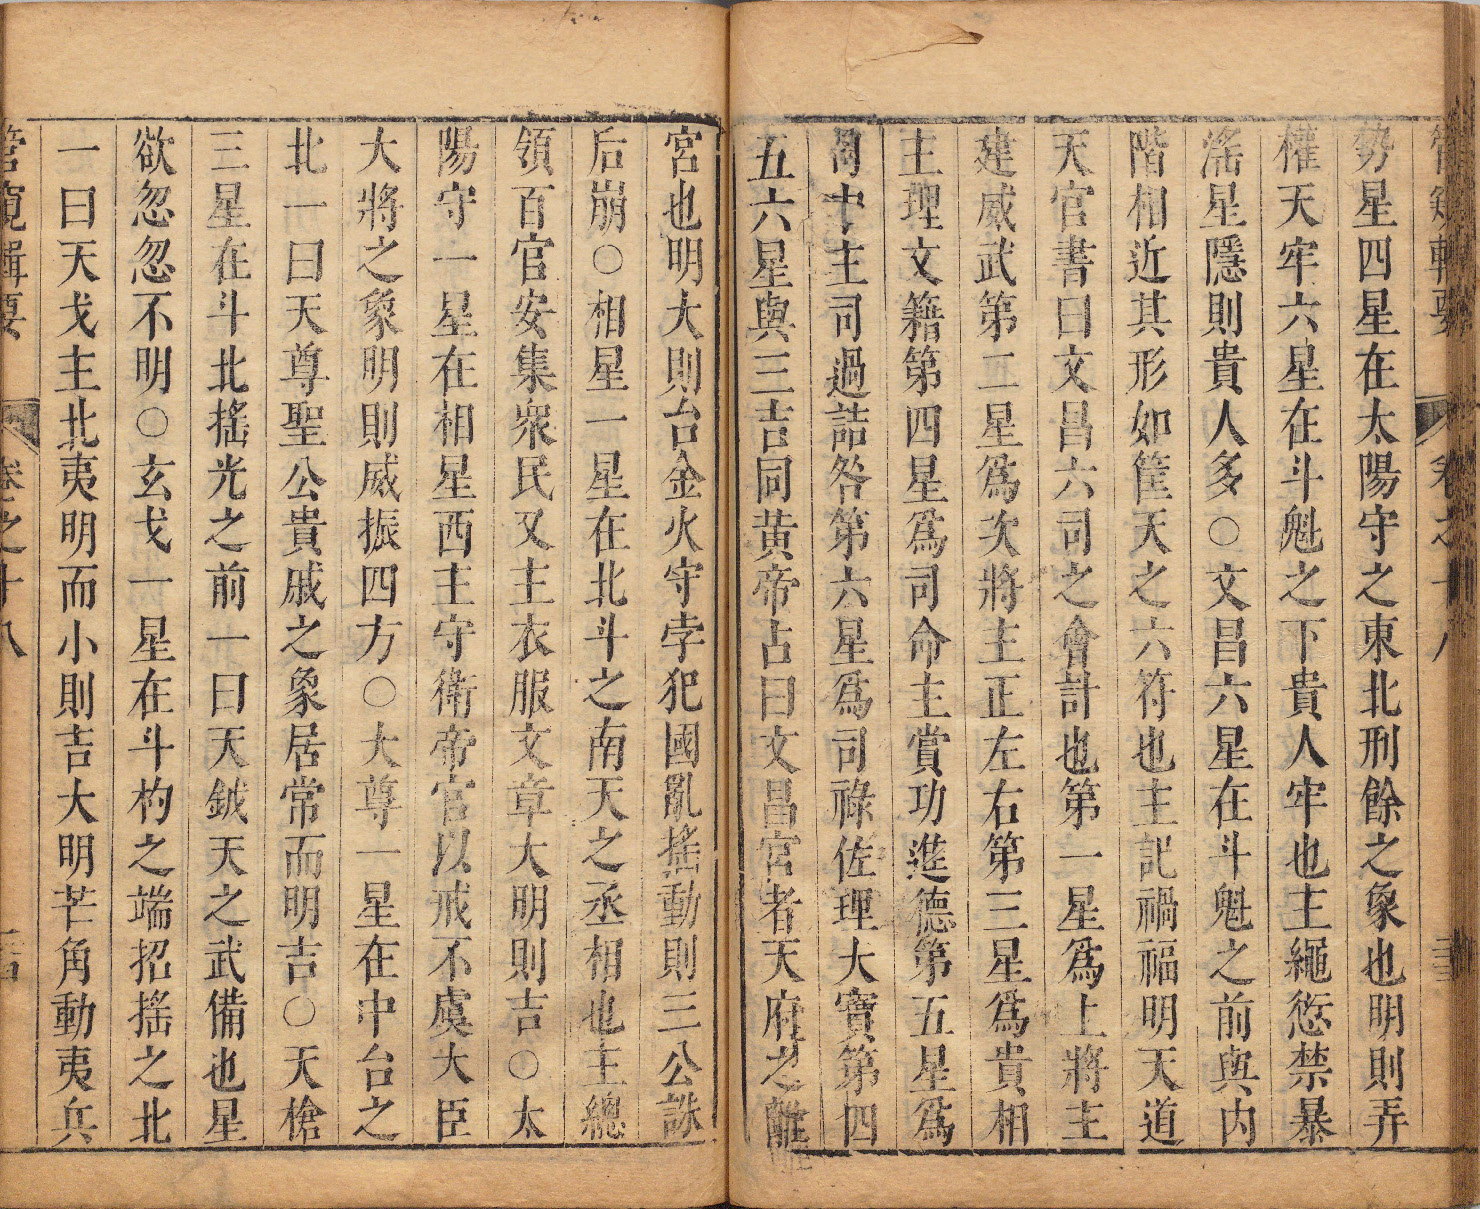 管窺輯要 卷之十八 三三
勢星四星在太陽守之東北刑餘之象也明則弄
權天牢六星在斗魁之下貴人牢也主繩愆禁暴
滛星隱則貴人多○文昌六星在斗魁之前與内
階相近其形如筐天之六符也主記禍福明天道
天官書曰文昌六司之會計也第一星爲上將主
建威武第二星爲次將主正左右第三星爲貴相
主理文籍第四星爲司命主賞功進德第五星爲
司中主司過詰咎第六星爲司祿佐理大寶第四
五六星與三吉同黃帝占曰文昌宮者天府之離
宮也明大則台金火守孛犯國亂搖動則三公誅
后崩○相星一星在北斗之南天之丞相也主總
領百官安集衆民又主衣服文章大明則吉○太
陽守一星在相星西主守衛帝官以戒不虞大臣
大將之象明則威振四方○大尊一星在中台之
北一曰天尊聖公貴戚之象居常而明吉○天槍
三星在斗北搖光之前一曰天鉞天之武備也星
欲忽忽不明○玄戈一星在斗杓之端招搖之北
一曰天戈主北夷明而小則吉大明芒角動夷兵
管窺輯要 卷之十八 三四